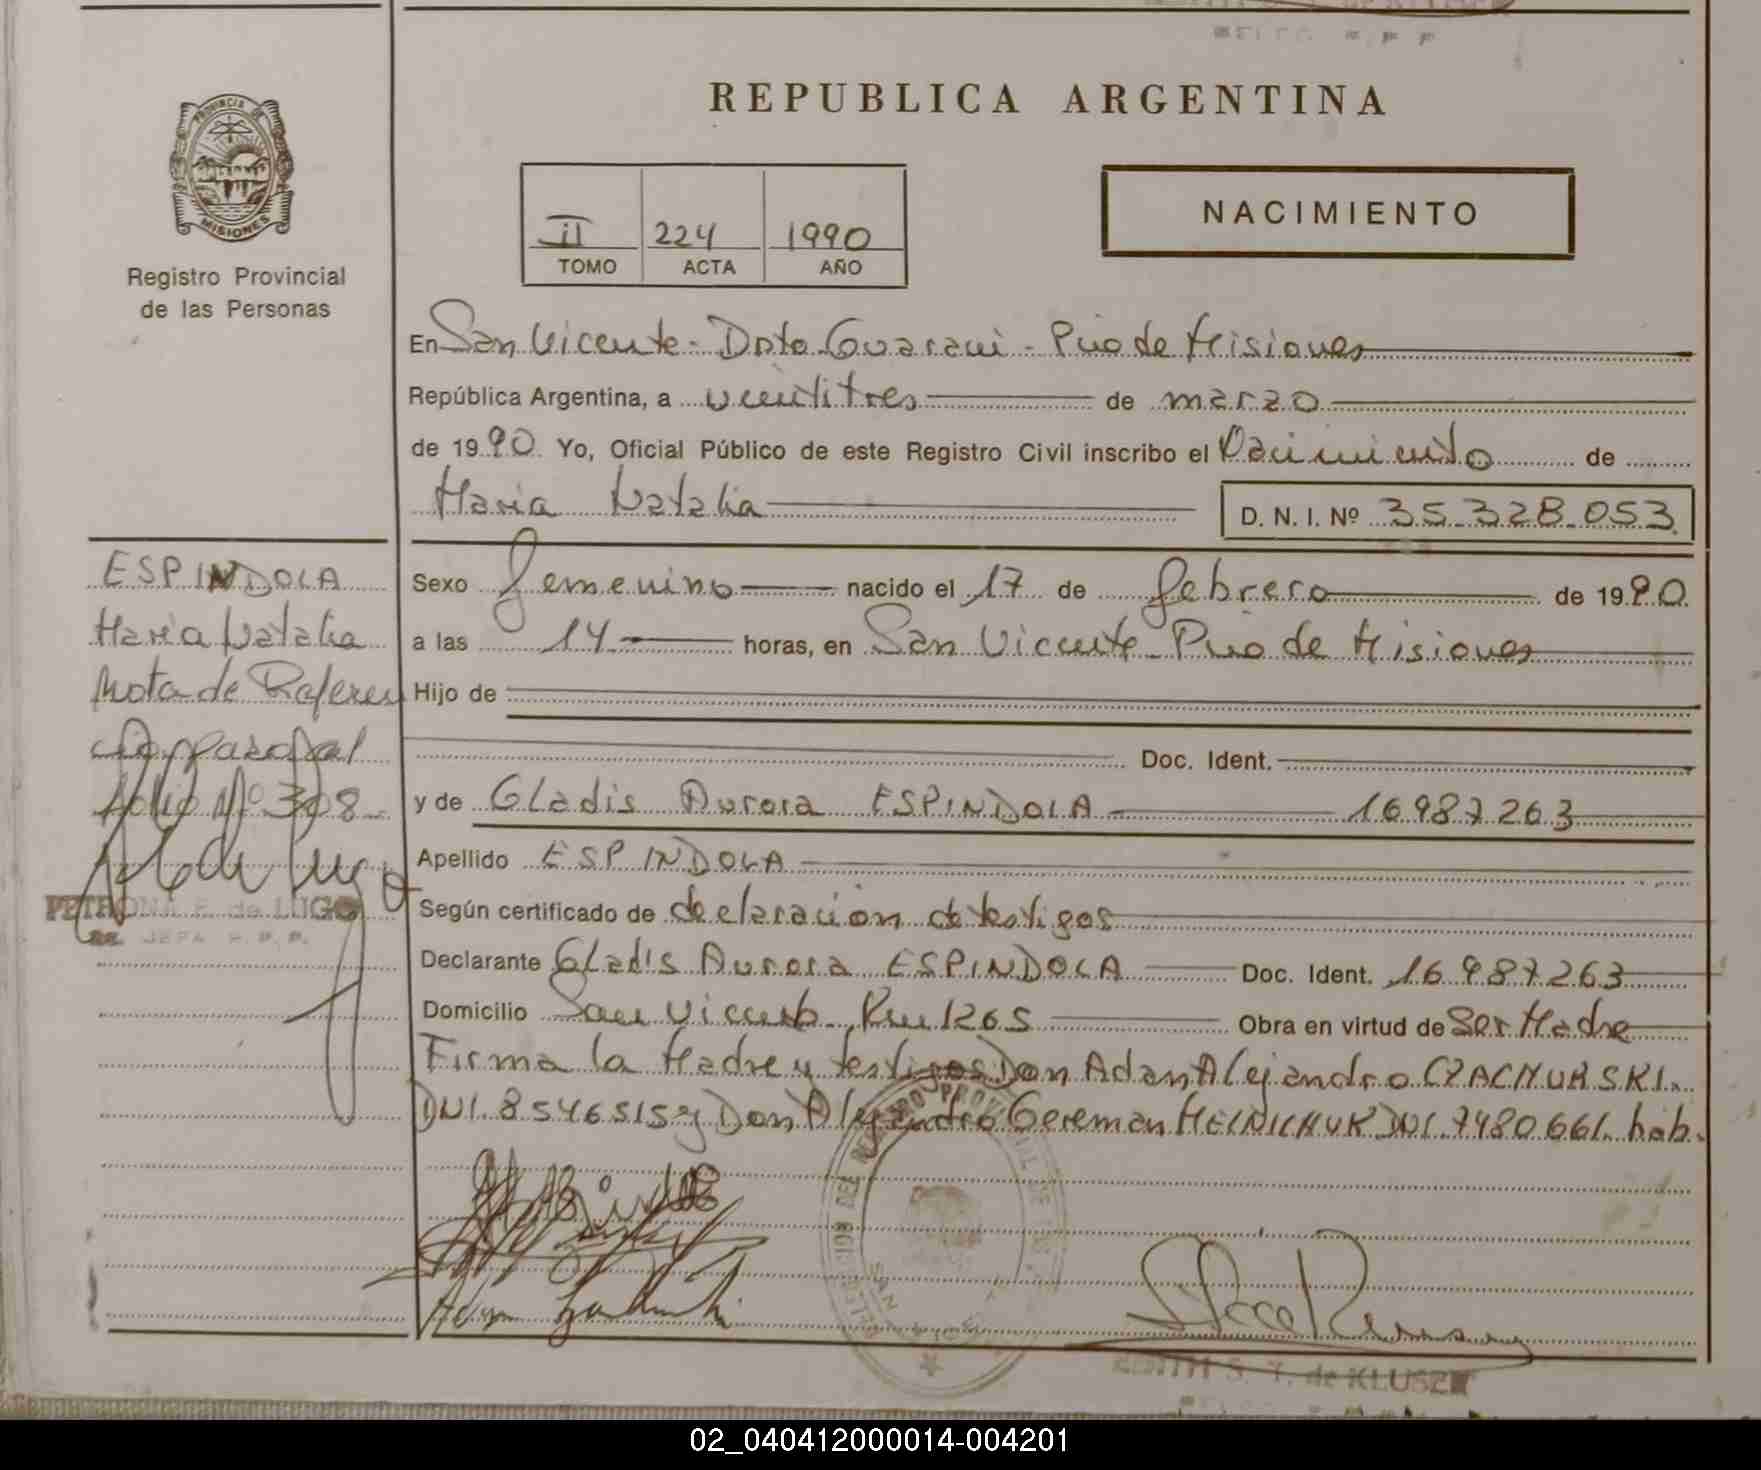 REPUBLICA ARGENTINA
PROVINCIA DE
MISIONES
Registro Provincial
de las Personas
II 224 1990
TOMO ACTA AÑO
NACIMIENTO
En San Vicente - Dpto Guarani - Pcia de Misiones
República Argentina, a veintitres de marzo
de 1990 Yo, Oficial Público de este Registro Civil inscribo el Nacimiento de
Maria Natalia D. N. I. Nº 35.328.053
Sexo femenino nacido el 17 de febrero de 1990
a las 14 horas, en San Vicente Pcia de Misiones
Hijo de
Doc. Ident.
y de Gladis Aurora ESPINDOLA 16987263
Apellido ESPINDOLA
Según certificado de declaración de testigos
Declarante Gladis Aurora ESPINDOLA Doc. Ident. 16.987.263
Domicilio San Vicente Km 1265 Obra en virtud de Ser Madre
Firma la Madre y testigos Don Adan Alejandro CZACHURSKI
DNI. 8546515 y Don Alejandro Gereman MELNICHUK DNI. 7480661. hab.
ESPINDOLA
Maria Natalia
Nota de Referen
cia
folio Nº 308
PETRONA E. de LUGO
JEFA R. P. P.
SAN
EDITH S. T. de KLUSZ
02_040412000014-004201